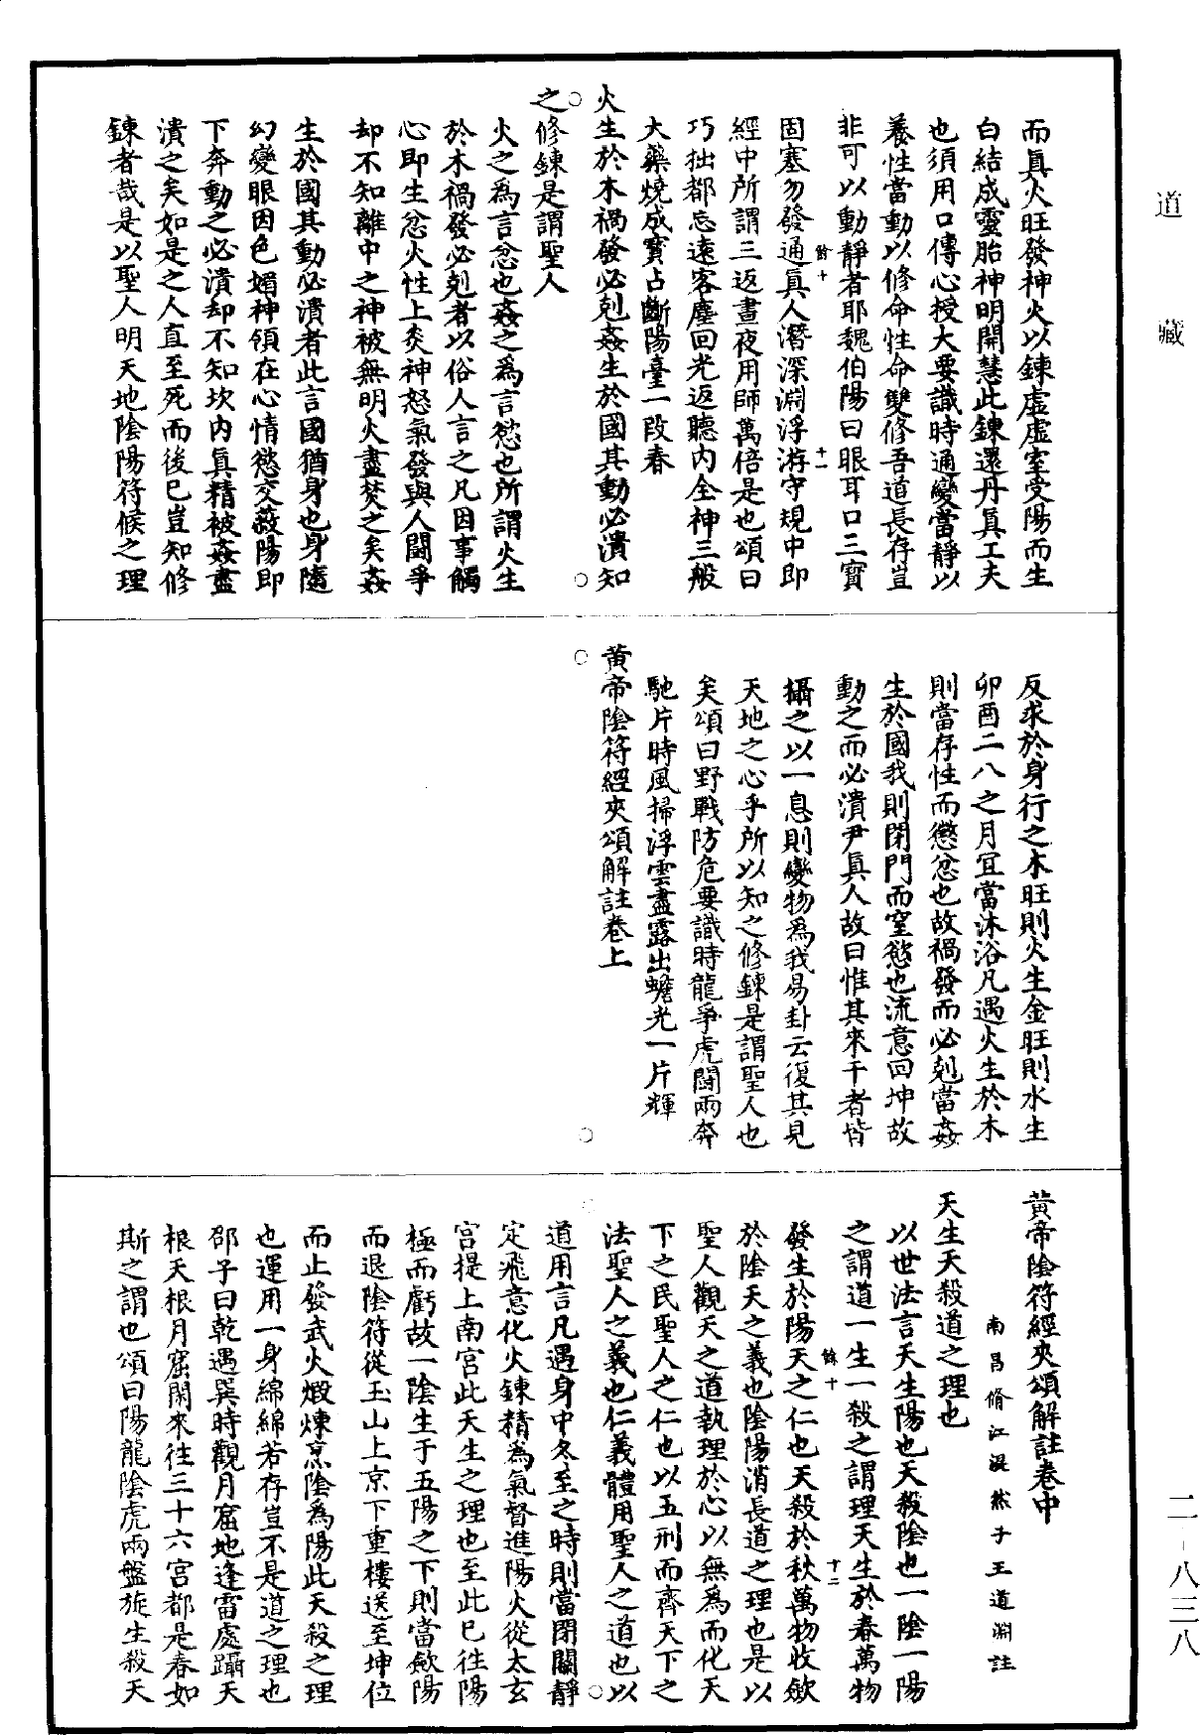 道藏
而眞火旺發神火以鍊虛虛室受陽而生
白結成靈胎神明開慧此鍊還丹眞工夫
也須用口傳心授大要識時通變當靜以
養性當動以修命性命雙修吾道長存豈
非可以動靜者耶魏伯陽曰眼耳口三寶
餘十 十一
固塞勿發通眞人潛深淵浮游守規中即
經中所謂三返晝夜用師萬倍是也頌曰
巧拙都忘遠客塵回光返聽内全神三般
大藥燒成寶占斷陽臺一段春
火生於木禍發必剋姦生於國其動必潰知
之修鍊是謂聖人
火之爲言忿也姦之爲言慾也所謂火生
於木禍發必剋者以俗人言之凡因事觸
心即生忿火性上炎神怒氣發與人鬪爭
却不知離中之神被無明火盡焚之矣姦
生於國其動必潰者此言國猶身也身隨
幻變眼因色媚神領在心情慾交蔽陽即
下奔動之必潰却不知坎内眞精被姦盡
潰之矣如是之人直至死而後已豈知修
鍊者哉是以聖人明天地陰陽符候之理
反求於身行之木旺則火生金旺則水生
卯酉二八之月宜當沐浴凡遇火生於木
則當存性而懲忿也故禍發而必剋當姦
生於國我則閉門而窒慾也流意回坤故
動之而必潰尹眞人故曰惟其來干者皆
攝之以一息則變物爲我易卦云復其見
天地之心乎所以知之修鍊是謂聖人也
矣頌曰野戰防危要識時龍爭虎鬪兩奔
馳片時風掃浮雲盡露出蟾光一片輝
黄帝陰符經夾頌解註卷上
黄帝陰符經夾頌解註卷中
南昌脩江混然子王道淵註
天生天殺道之理也
以世法言天生陽也天殺陰也一陰一陽
之謂道一生一殺之謂理天生於春萬物
餘十 十二
發生於陽天之仁也天殺於秋萬物收斂
於陰天之義也陰陽消長道之理也是以
聖人觀天之道執理於心以無爲而化天
下之民聖人之仁也以五刑而齊天下之
法聖人之義也仁義體用聖人之道也以
道用言凡遇身中冬至之時則當閉關靜
定飛意化火鍊精爲氣督進陽火從太玄
宮提上南宮此天生之理也至此已往陽
極而虧故一陰生于五陽之下則當斂陽
而退陰符從玉山上京下重樓送至坤位
而止發武火煅煉烹陰爲陽此天殺之理
也運用一身綿綿若存豈不是道之理也
邵子曰乾遇巽時觀月窟地逢雷處躡天
根天根月窟閑來往三十六宮都是春如
斯之謂也頌曰陽龍陰虎兩盤旋生殺天
二-八三八